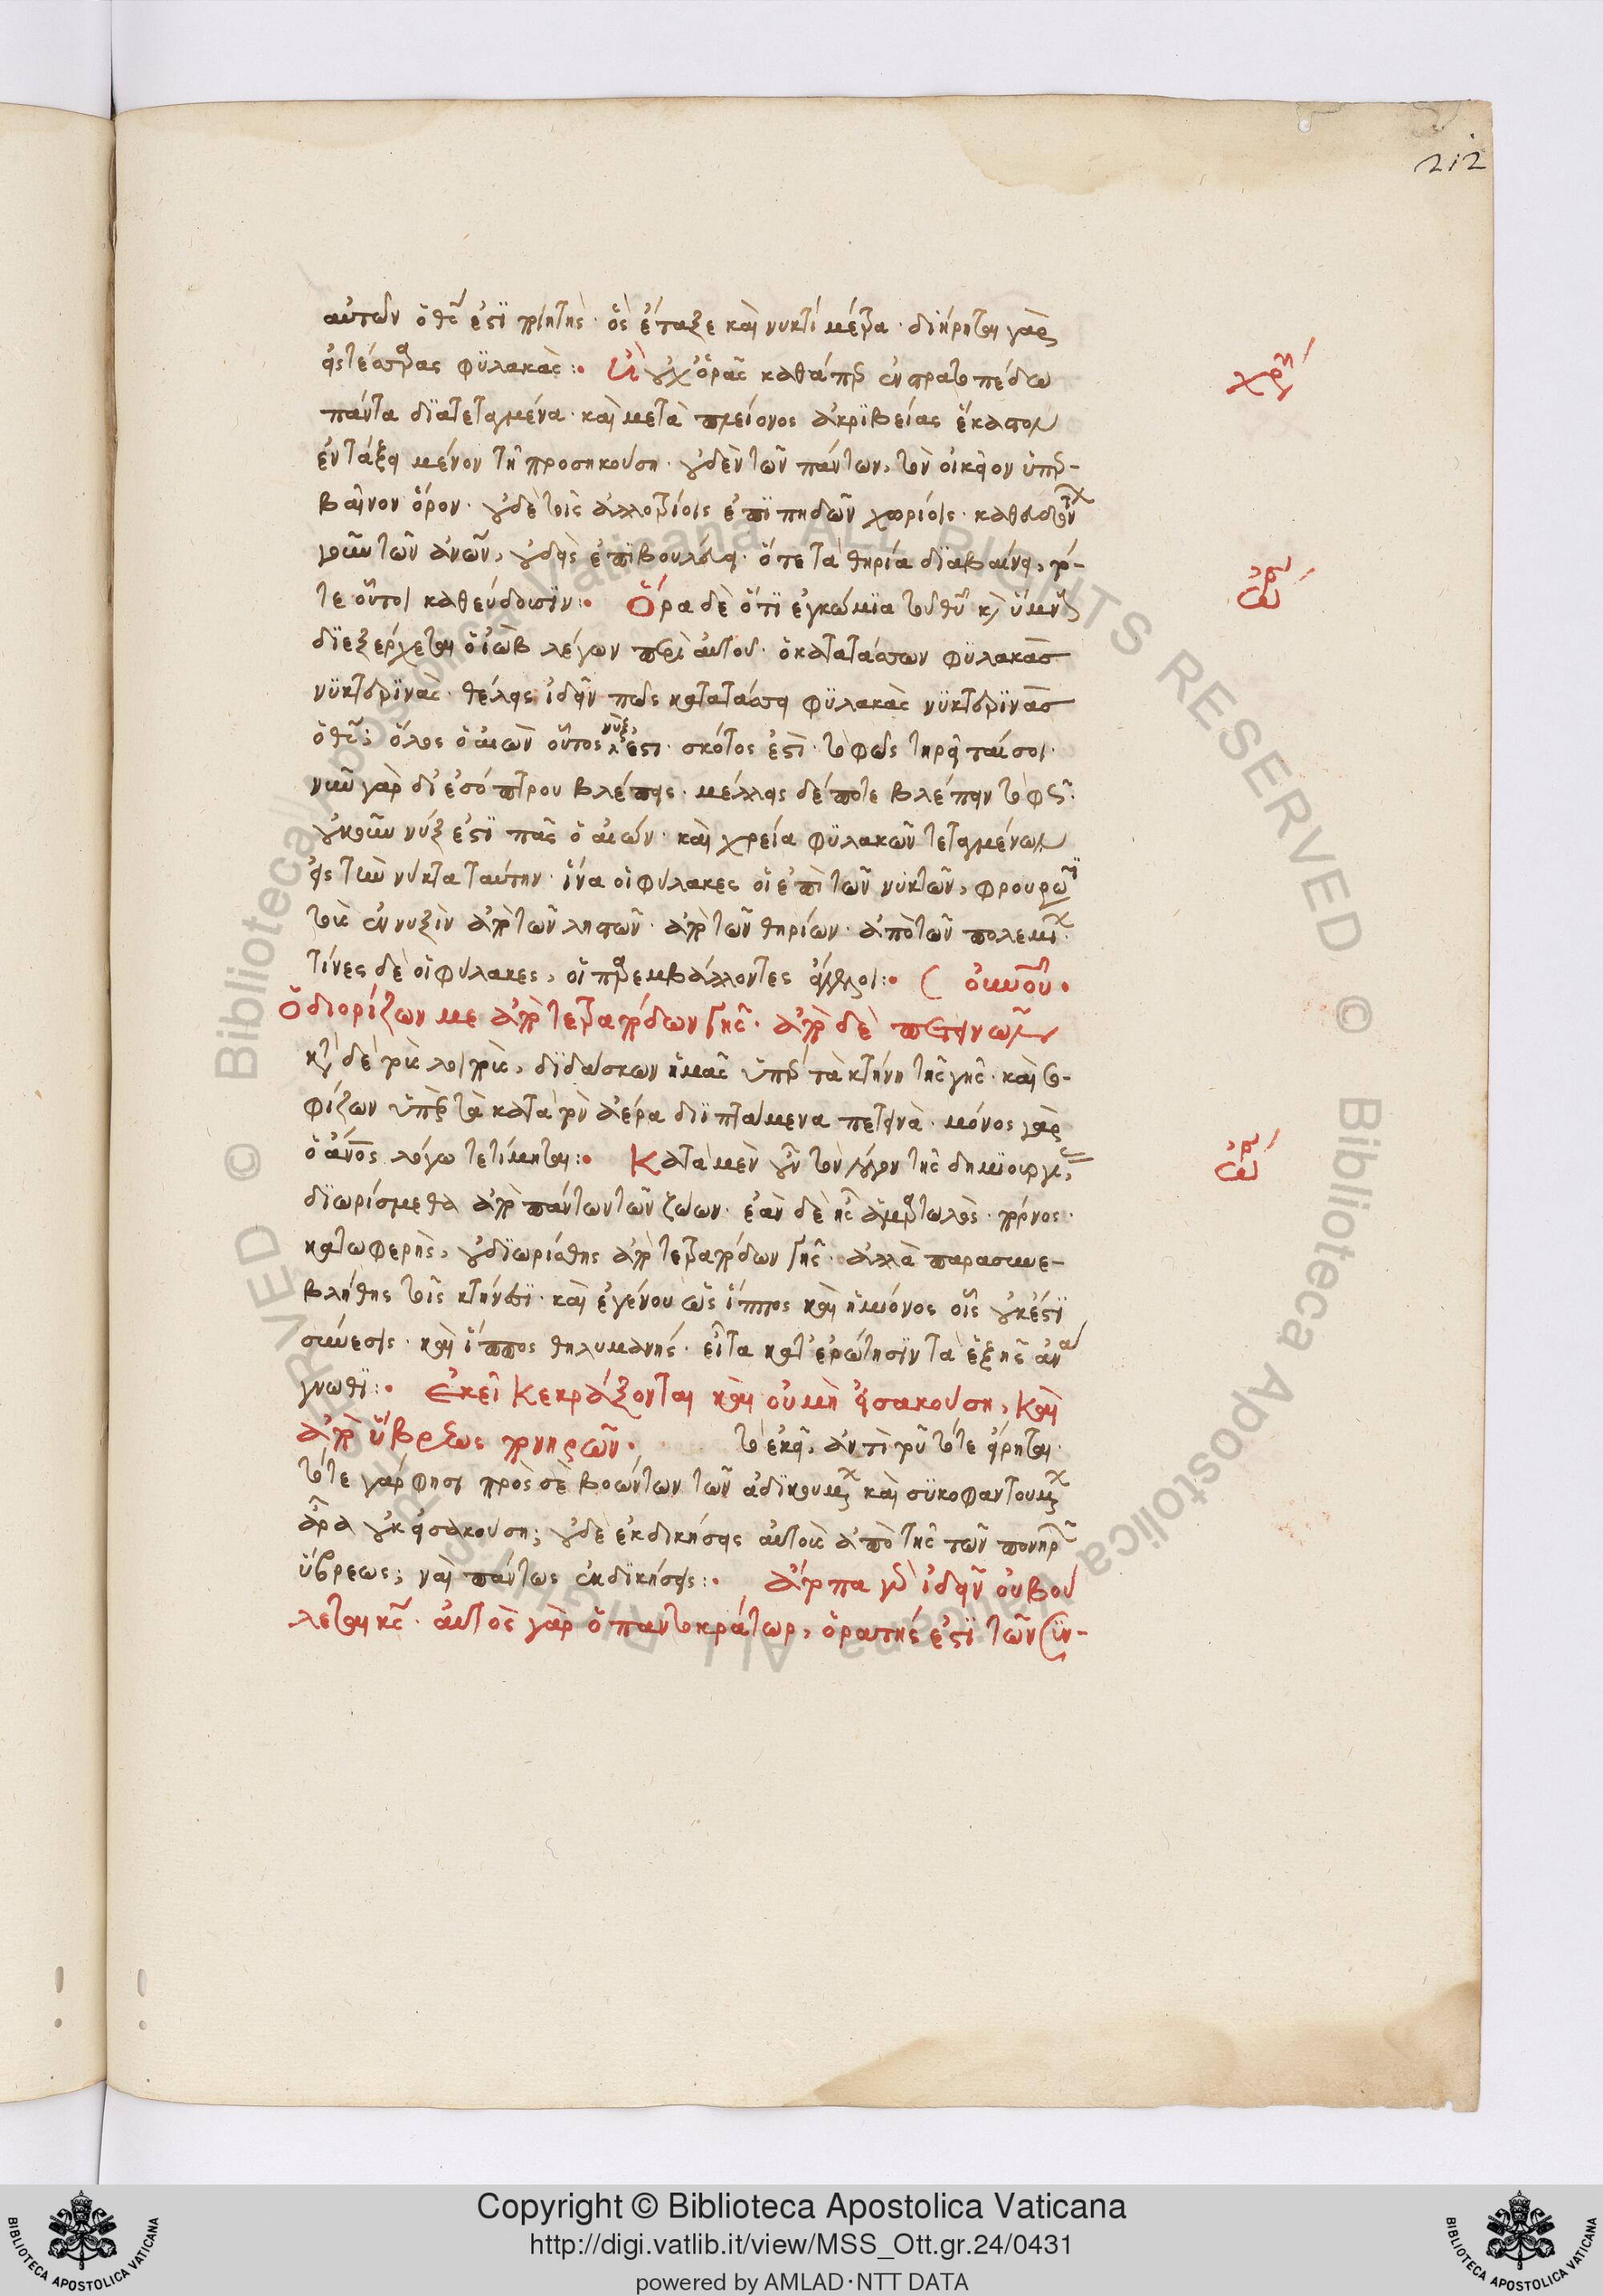 212
αὐτῶν ὁ θς ἐστι ποιητής· ὃς ἔταξε καὶ νυκτὶ μέτρα· διῄρηται γὰρ
εἰς τέσσαρας φϋλακάς:·
οὐχ ὁρᾶς καθάπερ ἐν στρατοπέδω
πάντα διατεταγμένα· καὶ μετὰ πλείονος ἀκριβείας ἕκαστον
ἐντάξει μένον τῆ προσηκούση· οὐδὲν τῶν πάντων, τὸν οἰκεῖον ὑπερ-
βαῖνον ὅρον· οὐδὲ τοῖς ἀλλοτρίοις ἐπιπηδῶν χωρίοις·
τῶν ἀνων, οὐδεὶς ἐπιβουλεύει· ὅτε τὰ θηρία διαβαίνει, τό-
τε οὗτοι καθεύδουσιν:· Ὅρα δὲ ὅτι ἐγκώμια τοῦ θυ κ(αὶ) ὕμνους
διεξέρχεται ὁ ἰὼβ λέγων περὶ αὐτοῦ· ὁ κατατάσσων φϋλακὰσ
νϋκτερϊνάς· θέλεις ἰδεῖν πῶς κατατάσσει φϋλακὰς νϋκτερϊνὰσ
ὁ θς; ὅλος ὁ αἰὼν οὗτος νύξ ἐστι· σκότος ἐστὶ· τὸ φῶς τηρεῖταί σοι·
νῦν γὰρ δι' ἐσόπτρου βλέπεις· μέλλεις δέ ποτε βλέπειν τὸ φῶς·
οὐκοῦν νύξ ἐστι πᾶς ὁ αἰών· καὶ χρεία φϋλακῶν τεταγμένων
εἰς τὴν νύκτα ταύτην· ἵνα οἱ φύλακες οἱ ἐπὶ τῶν νυκτῶν, φρουρῶσι
τοὺς ἐν νυξὶν ἀπὸ τῶν ληστῶν· ἀπὸ τῶν θηρίων· ἀπὸ τῶν πολεμίων·
τίνες δὲ οἱ φύλακες, οἱ παρεμβάλλοντες ἄγγελοι:·
Ὁ διορίζων με ἀπὸ τετραπόδων γῆς· ἀπὸ δὲ πετεινῶν
τοὺς λοιποὺς, διδάσκων ἡμᾶς ὑπὲρ τὰ κτήνη τῆς γῆς· καὶ σο-
φίζων ὑπὲρ τὰ κατὰ τὸν ἀέρα διϊπτάμενα πετεινά· μόνος γὰρ
ὁ ἀνος λόγω τετίμηται:· Κατὰ μὲν οὖν τὸν λόγον τῆς δημιουργίας,
διωρίσμεθα ἀπὸ πάντων τῶν ζώων· ἐὰν δὲ ἦς ἁμαρτωλὸς· πόρνος·
κατωφερὴς, οὐ διωρίσθης ἀπὸ τετραπόδων γῆς· ἀλλὰ παρασυνε-
βλήθης τοῖς κτήνεσι· καὶ ἐγένου ὡς ἵππος καὶ ἡμίονος οἷς οὐκ ἔστι
σύνεσις· καὶ ἵππος θηλυμανής· εἶτα κατ' ἐρώτησιν τὰ ἑξῆς ἀνά
γνωθι:· Ἐκεῖ κεκράξονται καὶ οὐ μὴ εἰσακούση, καὶ
ἀπὸ ὕβρεως πονηρῶν· τὸ ἐκεῖ, ἀντὶ τοῦ τότε εἴρηται·
τότε γάρ φησι πρὸς σὲ βοώντων τῶν ἀδικουμένων καὶ συκοφαντουμένων
ἆρα οὐκ εἰσακούση; οὐδὲ ἐκδικήσεις αὐτοὺς ἀπὸ τῆς τῶν πονηρῶν
ὕβρεως; ναὶ πάντως ἐκδικήσεις:· ἄτοπα γὰρ ἰδεῖν οὐ βού
λεται κς· αὐτὸς γὰρ ὁ παντοκράτωρ, ὁρατής ἐστι τῶν συν-
Copyright © Biblioteca Apostolica Vaticana
http://digi.vatlib.it/view/MSS_Ott.gr.24/0431
powered by AMLAD·NTT DATA